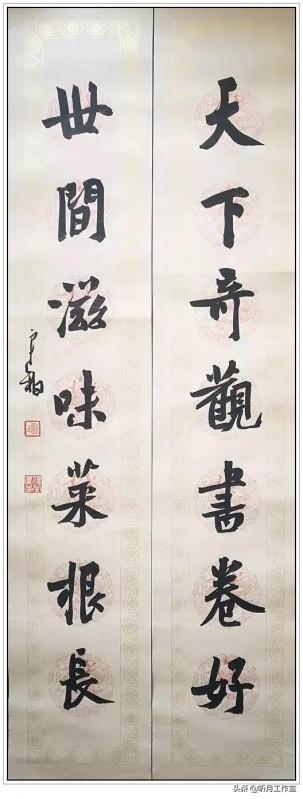 天下奇觀書卷好
世間滋味菜根長
头条@听月工作室